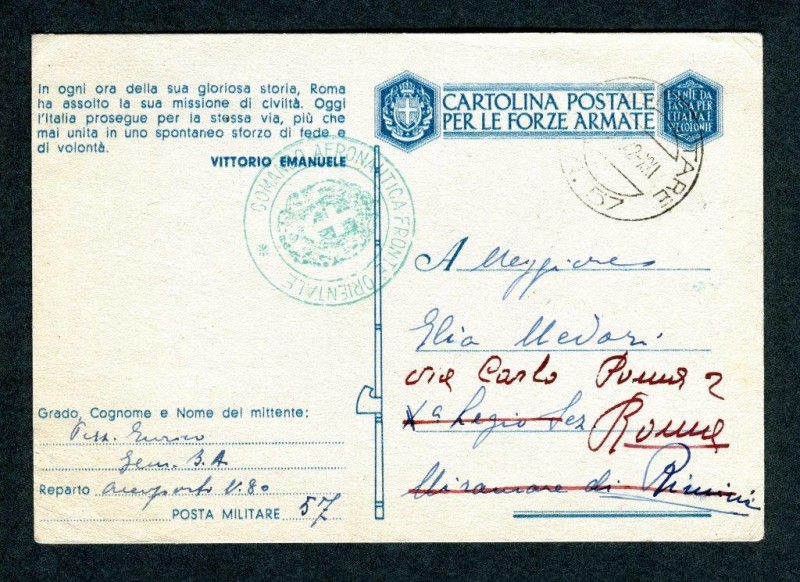 In ogni ora della sua gloriosa storia, Roma
ha assolto la sua missione di civiltà. Oggi
l'Italia prosegue per la stessa via, più che
mai unita in uno spontaneo sforzo di fede e
di volontà.
VITTORIO EMANUELE
CARTOLINA POSTALE
PER LE FORZE ARMATE
ESENTE DA
TASSA PER
L'ITALIA E
SUE COLONIE
2-XXI
TARE
57
COMANDO AERONAUTICA FRONTE ORIENTALE *
A Maggiore
Elio
via Carlo Poma 2
Xª Legio
Roma
Miramare di Rimini
Grado, Cognome e Nome del mittente:
Enrico
Gen. B.A
Reparto Aeroporto N. 80
POSTA MILITARE 57